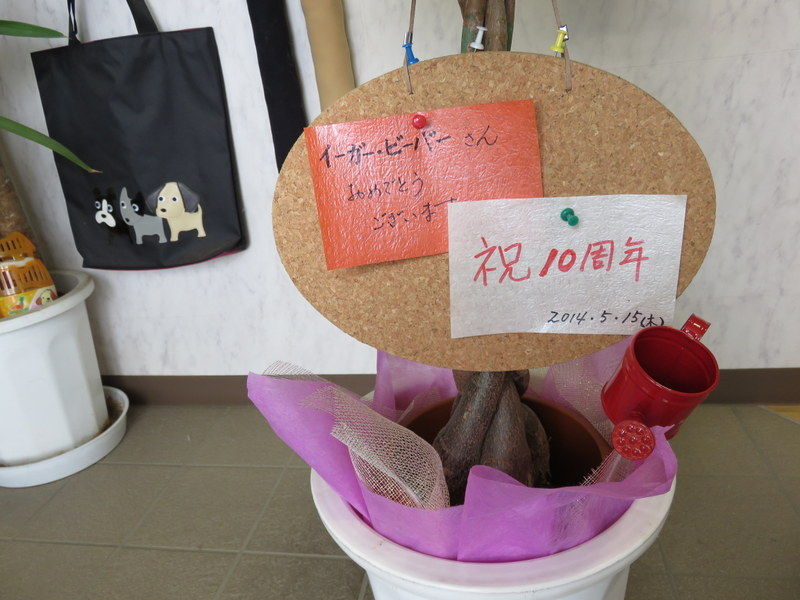 イーガー・ビーバーさん
おめでとう
ございます
祝10周年
2014.5.15(木)